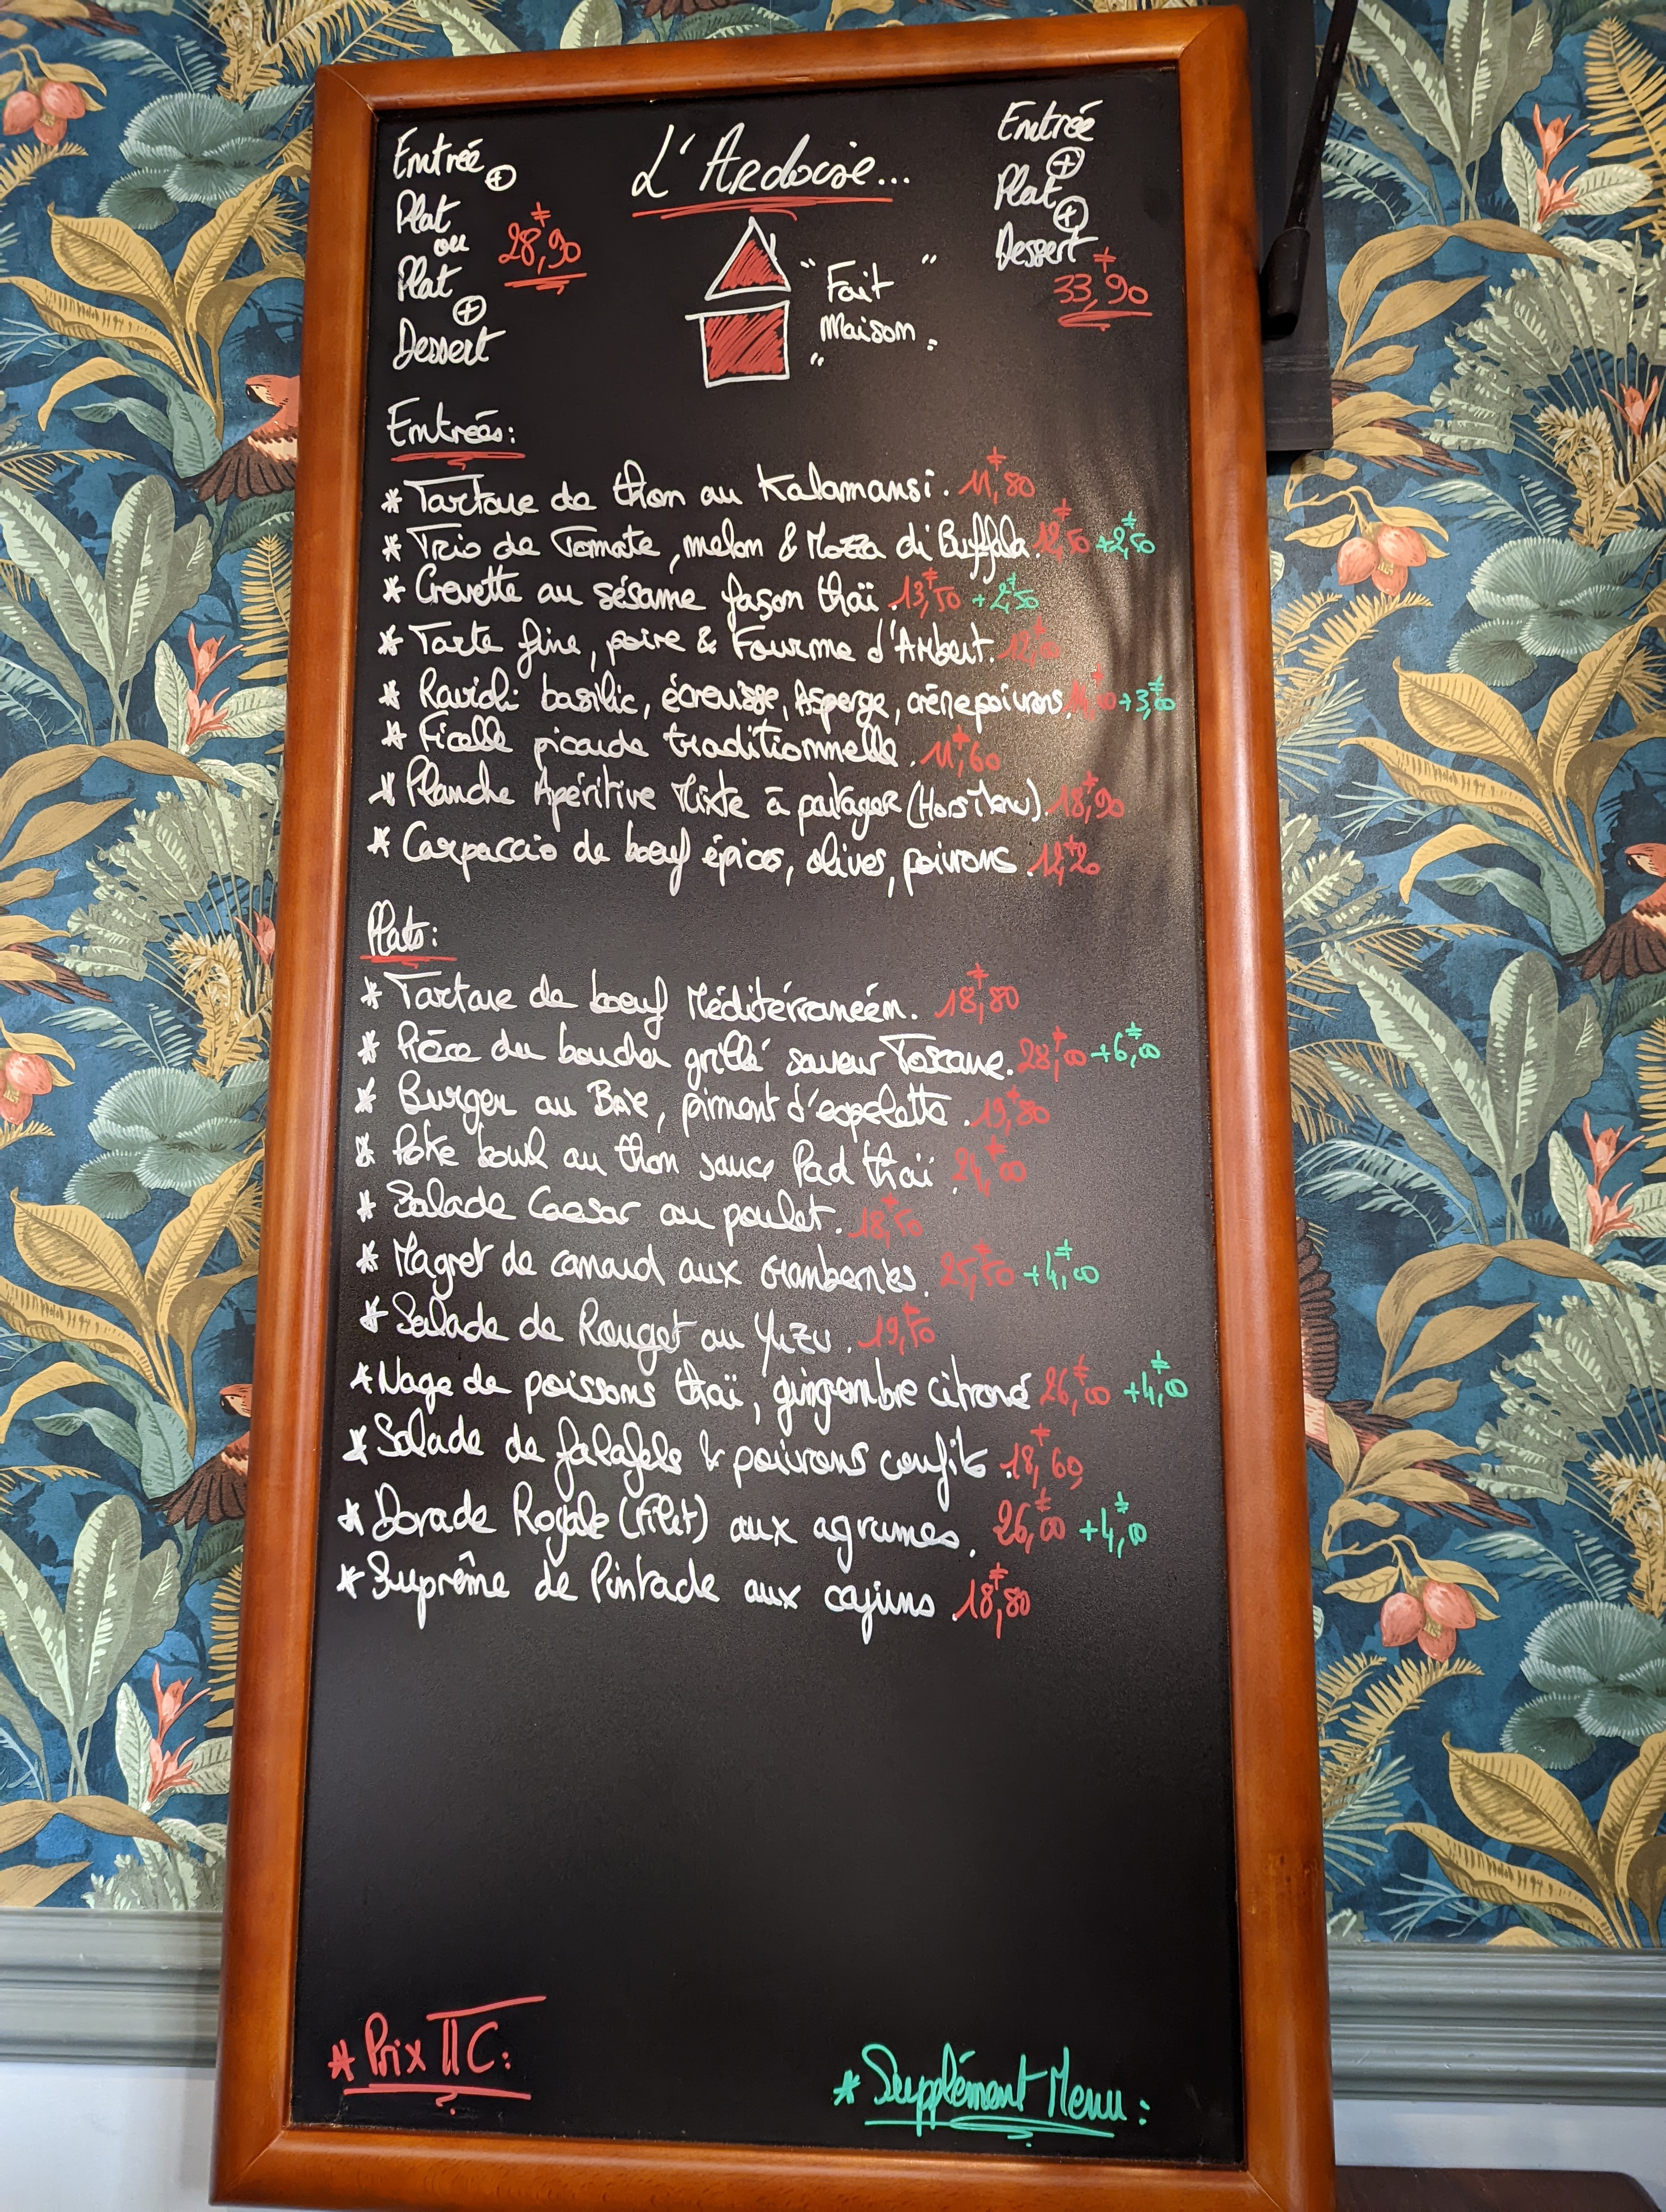 L'Ardoise...
Entrée
⊕
Plat
ou
Plat
⊕
Dessert
28,90
"Fait"
Maison
Entrée
⊕
Plat
⊕
Dessert
33,90
Entrées:
* Tartare de thon au Kalamansi. 11,80
* Trio de Tomate, melon & Mozza di Buffala. 12,50 +2,50
* Crevette au sésame façon thaï. 13,50 +2,50
* Tarte fine, poire & Fourme d'Ambert. 12,00
* Ravioli basilic, écrevisse, Asperge, crème poivrons. +3,00
* Ficelle picarde traditionnelle. 11,60
* Planche Apéritive Mixte à partager (Hors Menu). 18,90
* Carpaccio de boeuf épices, olives, poivrons. 12,20
Plats:
* Tartare de boeuf Méditérranéen. 18,80
* Pièce du boucher grillé saveur Toscane. 28,00 +6,00
* Burger au Brie, piment d'espelette. 19,80
* Poke bowl au thon sauce Pad thaï. 24,00
* Salade Caesar au poulet. 18,50
* Magret de canard aux cranberries. 25,50 +4,00
* Salade de Rouget au Yuzu. 19,50
* Nage de poissons thaï, gingembre citroné 26,00 +4,00
* Salade de falafels & poivrons confits. 18,60
* Dorade Royale (Filet) aux agrumes. 26,00 +4,00
* Suprême de Pintade aux cajuns. 18,80
* Prix TTC:
* Supplément Menu: